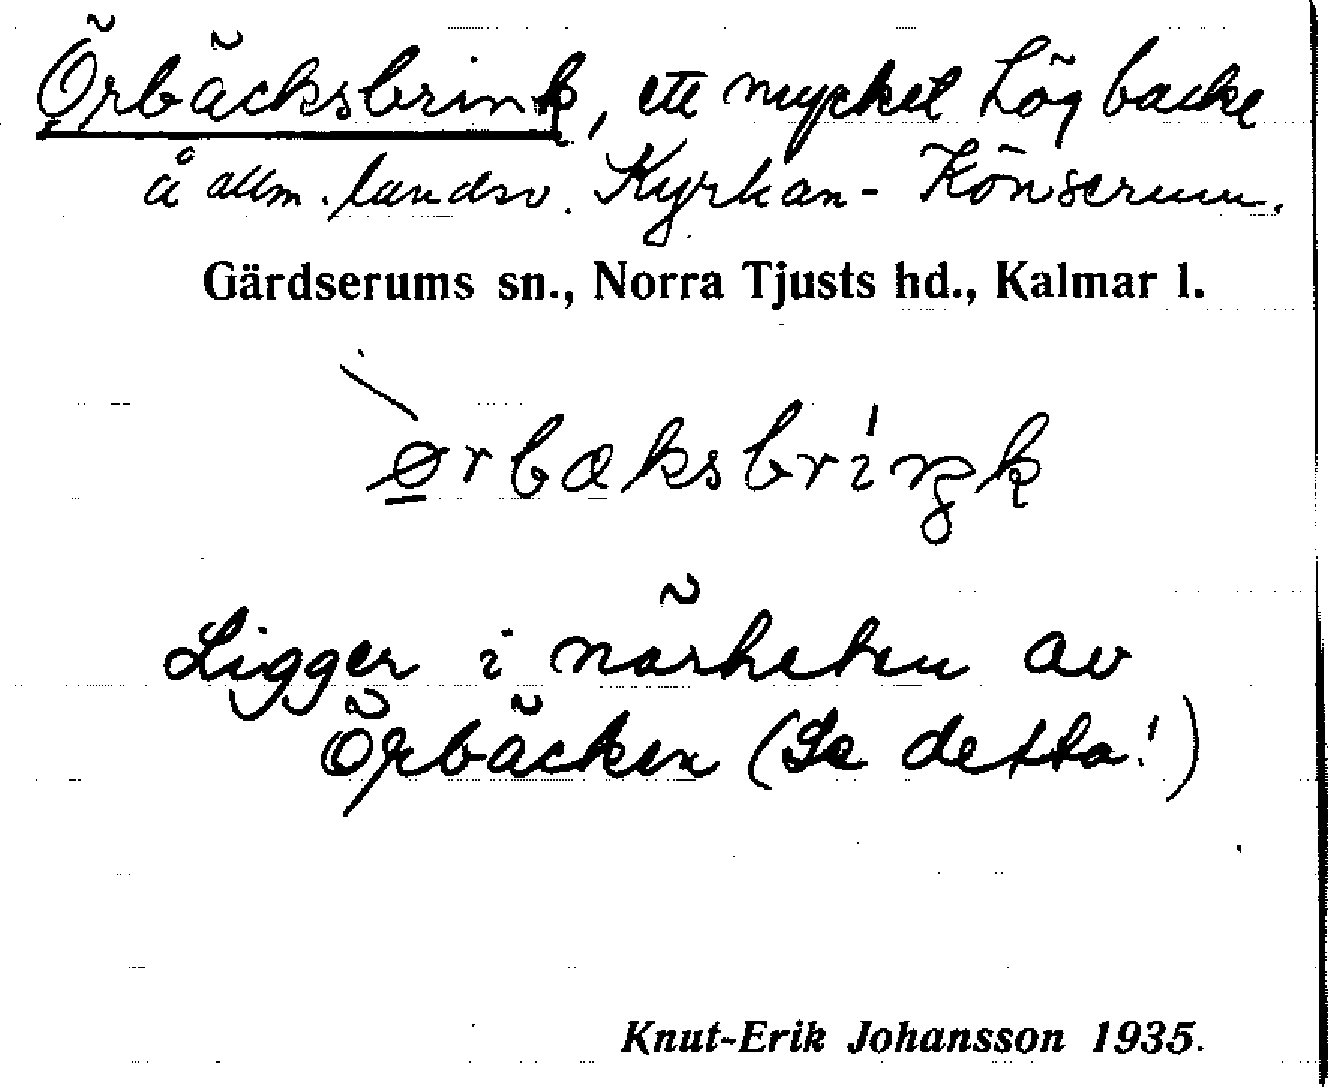 Örbäcksbrink, ett mycket hög backe
å allm. landsv. Kyrkan - Könserum.
Gärdserums sn., Norra Tjusts hd., Kalmar l.
ørbæksbriŋk
Ligger i närheten av
Örbäcken (Se detta!)
Knut-Erik Johansson 1935.